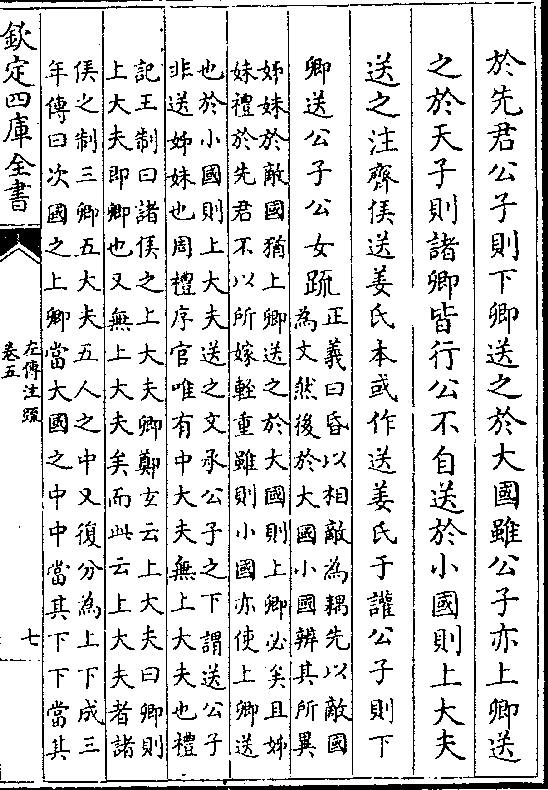 於先君公子則下卿送之於大國雖公子亦上卿送
之於天子則諸卿皆行公不自送於小國則上大夫
送之注齊侯送姜氏本或作送姜氏于讙公子則下
卿送公子公女疏
正義曰昏以相敵為耦先以敵國
為文然後於大國小國辨其所異
姊妹於敵國猶上卿送之於大國則上卿必矣且姊
妹禮於先君不以所嫁輕重雖則小國亦使上卿送
也於小國則上大夫送之文承公子之下謂送公子
非送姊妹也周禮序官唯有中大夫無上大夫也禮
記王制曰諸侯之上大夫卿鄭玄云上大夫曰卿則
上大夫即卿也又無上大夫矣而此云上大夫者諸
侯之制三卿五大夫五人之中又復分為上下成三
年傳曰次國之上卿當大國之中中當其下下當其
欽定四庫全書
左傳注疏
卷五
七